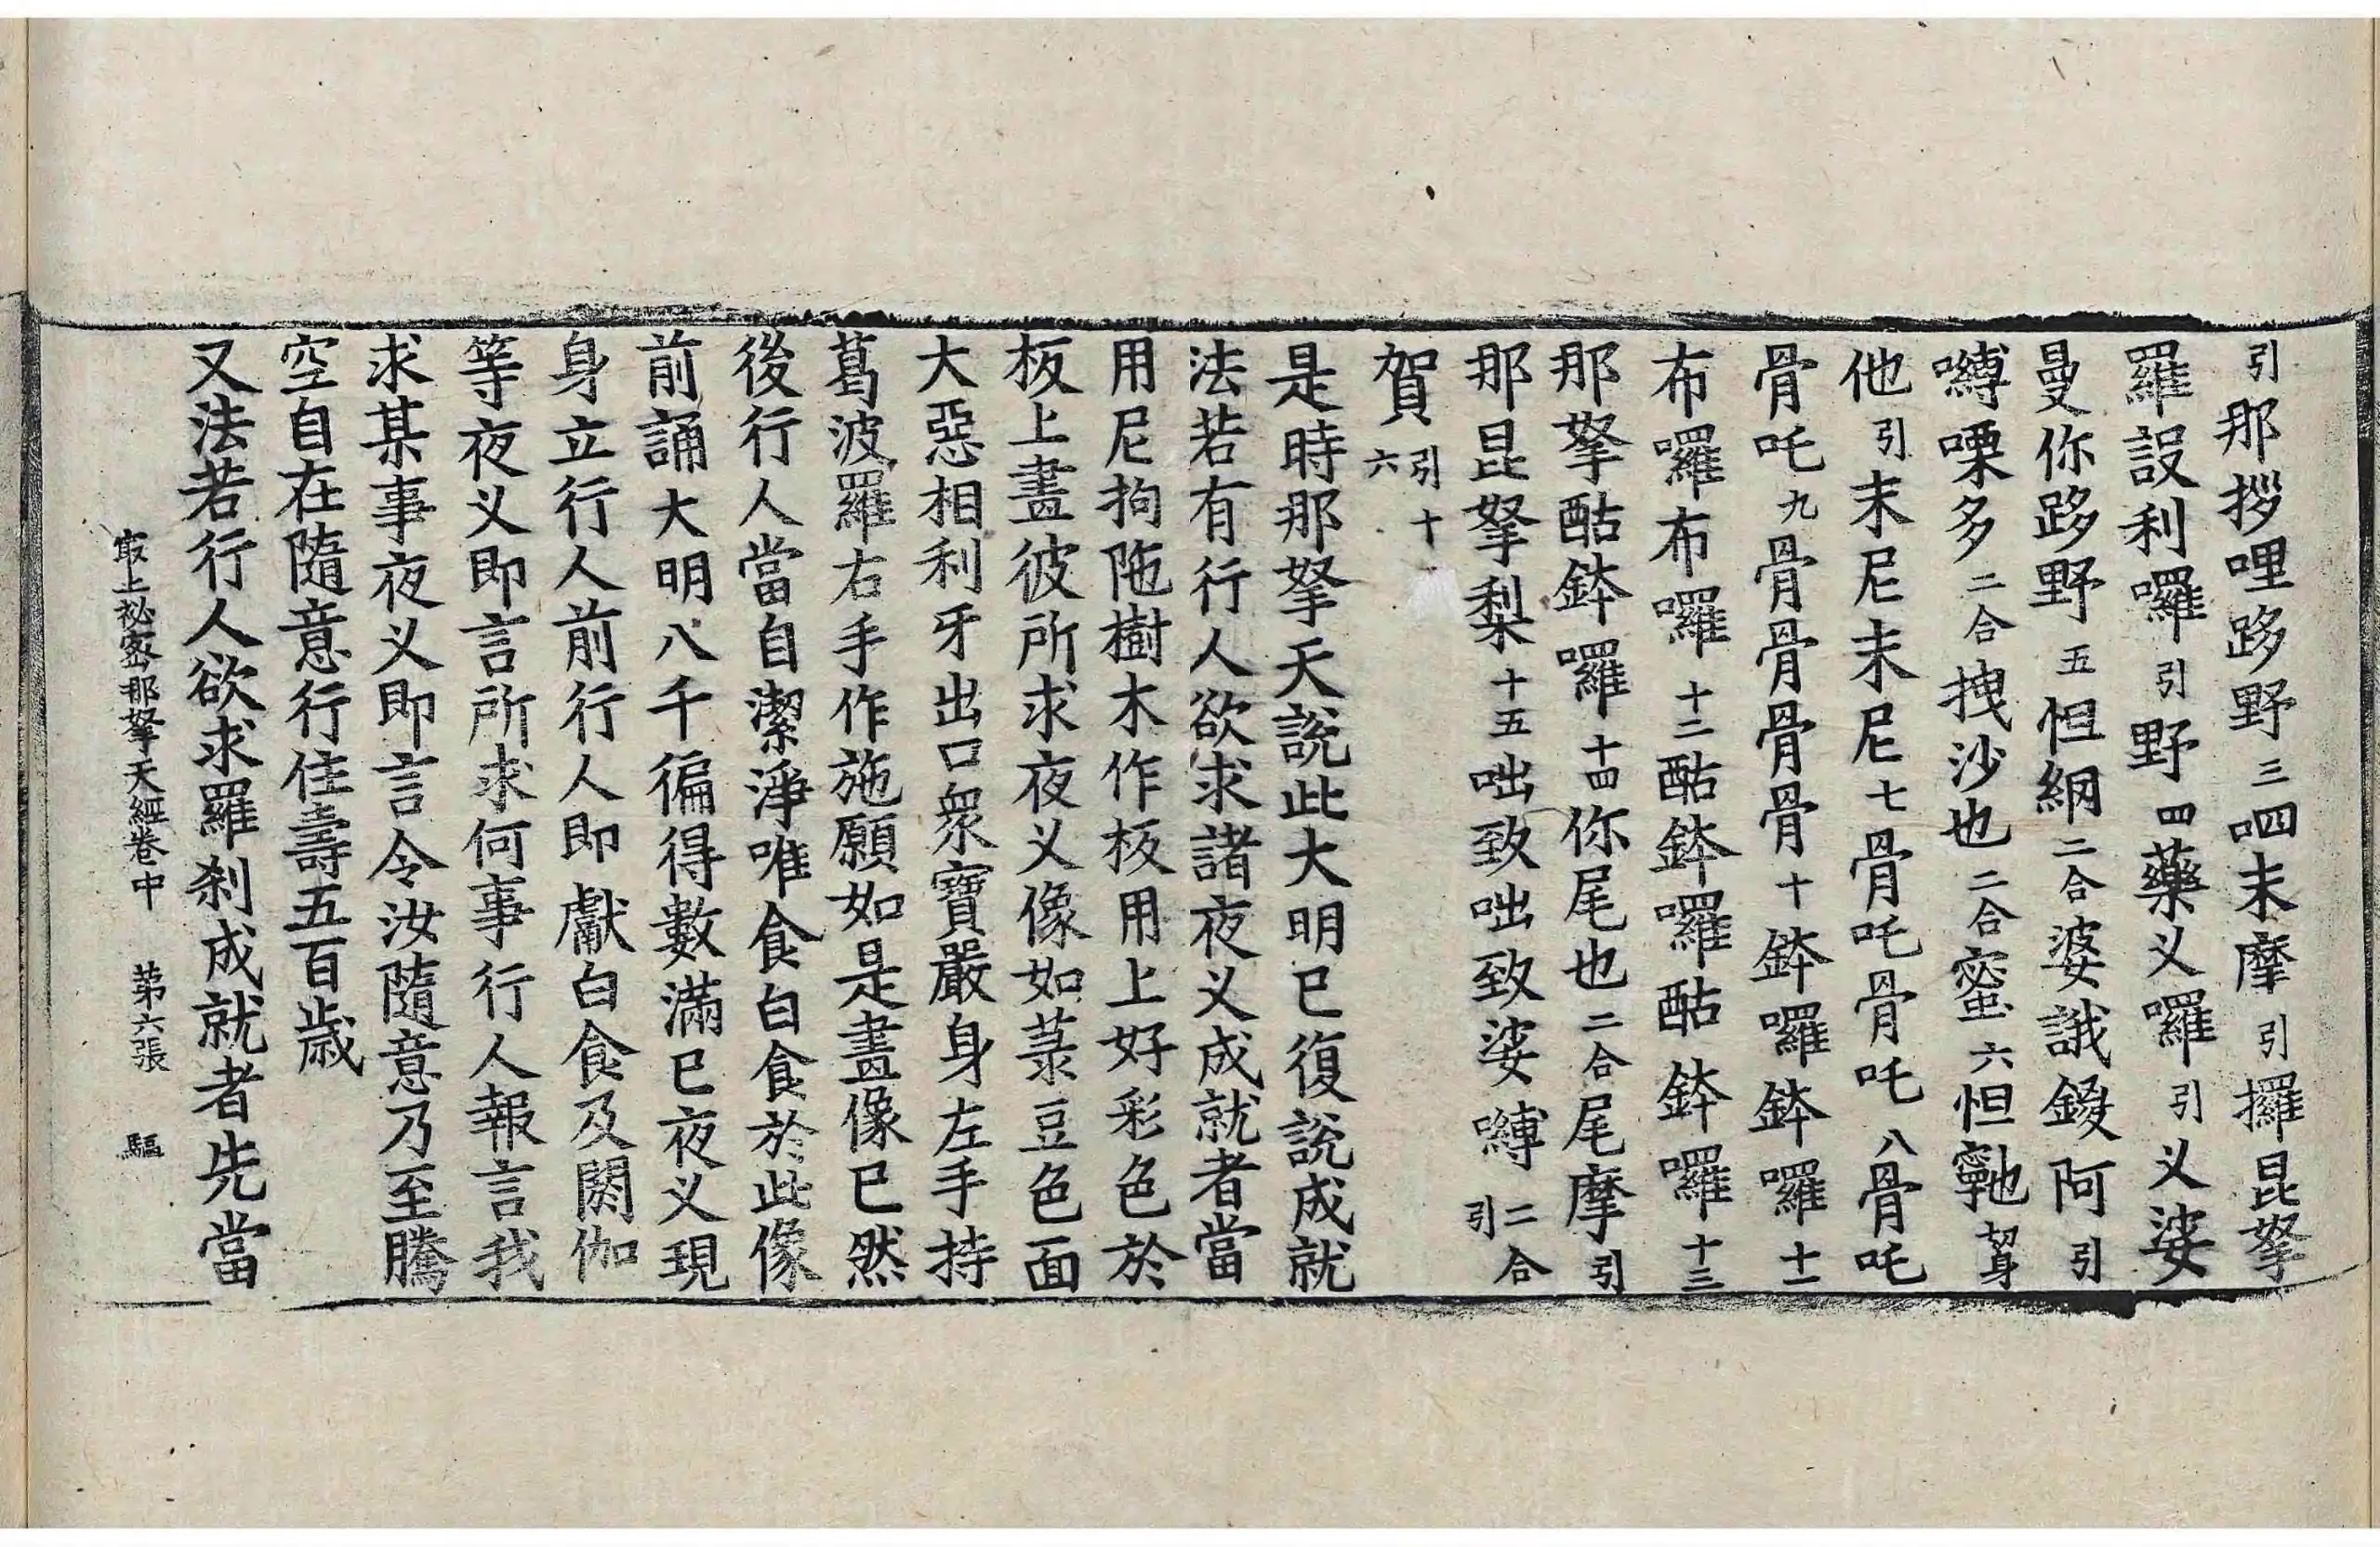 引那拶哩跢野三呬末摩引攞昆拏
羅設利囉引野四藥义囉引义娑
曼你跢野五怛綱二合婆誐鍐阿引
嚩㗚多二合拽沙也二合蜜六怛鞔切身
他引末尼末尼七骨吒骨吒八骨吒
骨吒九骨骨骨骨十鉢囉鉢囉十一
布囉布囉十二酤鉢囉酤鉢囉十三
那拏酤鉢囉十四你尾也二合尾摩引
那昆拏梨十五咄致咄致娑嚩二合引
賀引十六
是時那拏天說此大明已復說成就
法若有行人欲求諸夜义成就者當
用尼拘陁樹木作板用上好彩色於
板上畫彼所求夜义像如菉豆色面
大惡相利牙出口衆寶嚴身左手持
葛波羅右手作施願如是畫像已然
後行人當自潔淨唯食白食於此像
前誦大明八千徧得數滿已夜义現
身立行人前行人即獻白食及閼伽
等夜义即言所求何事行人報言我
求某事夜义即言令汝隨意乃至騰
空自在隨意行住壽五百歲
又法若行人欲求羅刹成就者先當
最上祕密那拏天經卷中 第六張 驅